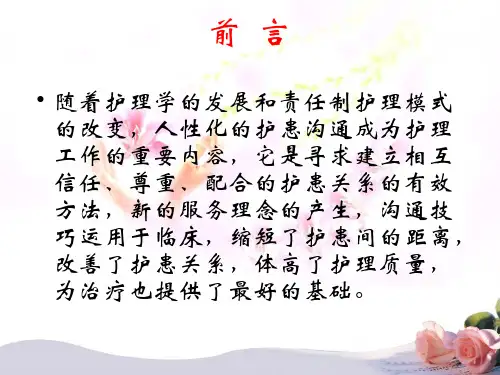 前 言
• 随着护理学的发展和责任制护理模式
的改变，人性化的护患沟通成为护理
工作的重要内容，它是寻求建立相互
信任、尊重、配合的护患关系的有效
方法，新的服务理念的产生，沟通技
巧运用于临床，缩短了护患间的距离，
改善了护患关系，体高了护理质量，
为治疗也提供了最好的基础。